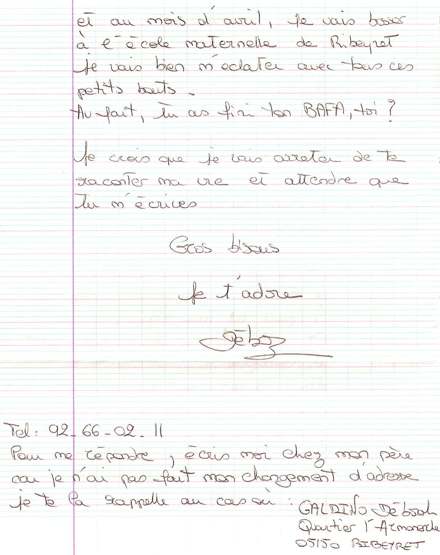 et au mois d'avril, je vais bosser
à l'école maternelle de Ribeyret
je vais bien m'éclater avec tous ces
petits bouts.
Au fait, tu as fini ton BAFA, toi ?
Je crois que je vais arreter de te
raconter ma vie et attendre que
tu m'écrives
Gros bisous
Je t'adore
Débo
Tel : 92-66-02-11
Pour me répondre, écris moi chez mon père
car je n'ai pas fait mon changement d'adresse
je te la rappelle au cas où :
GALDINO Déborah
Quartier l'
05150 RIBEYRET